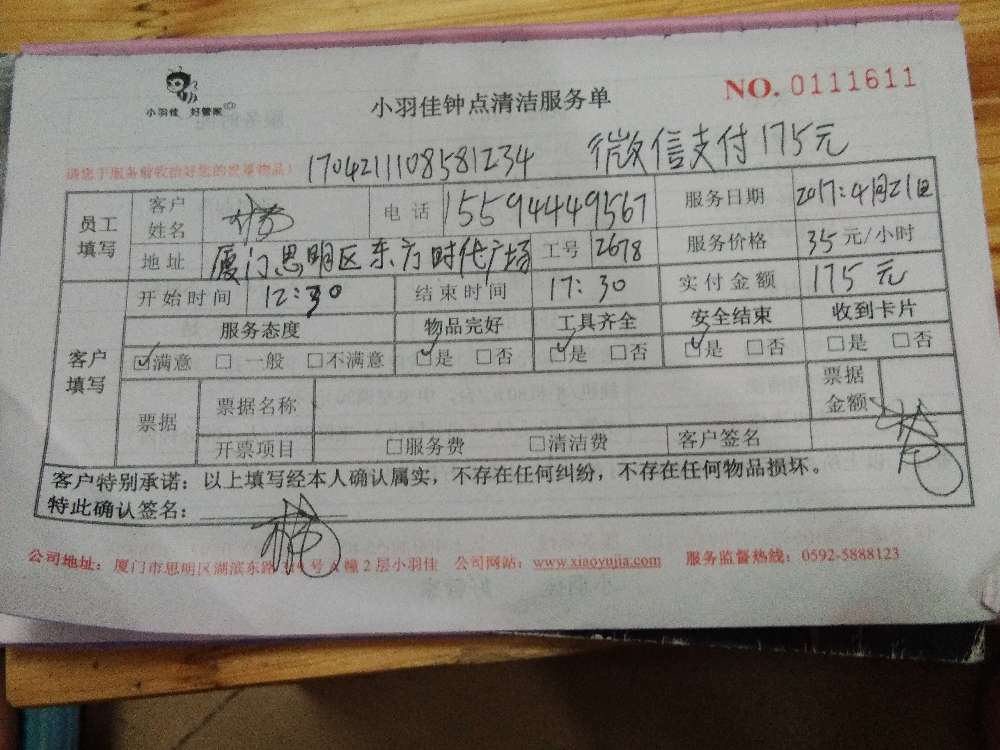 小羽佳 好管家
小羽佳钟点清洁服务单
NO. 0111611
请您于服务前收拾好您的贵重物品!
1704211108581234 微信支付175元
员工填写 客户姓名 杨 电话 15594449567 服务日期 2017:4月21日
地址 厦门思明区东方时代广场 工号 2678 服务价格 35元/小时
客户填写 开始时间 12:30 结束时间 17:30 实付金额 175元
服务态度 物品完好 工具齐全 安全结束 收到卡片
☑满意 □一般 □不满意 ☑是 □否 ☑是 □否 ☑是 □否 □是 □否
票据 票据名称 票据金额
开票项目 □服务费 □清洁费 客户签名 杨
客户特别承诺:以上填写经本人确认属实,不存在任何纠纷,不存在任何物品损坏。
特此确认签名: 杨
公司地址:厦门市思明区湖滨东路 号A幢2层小羽佳 公司网站:www.xiaoyujia.com 服务监督热线:0592-5888123